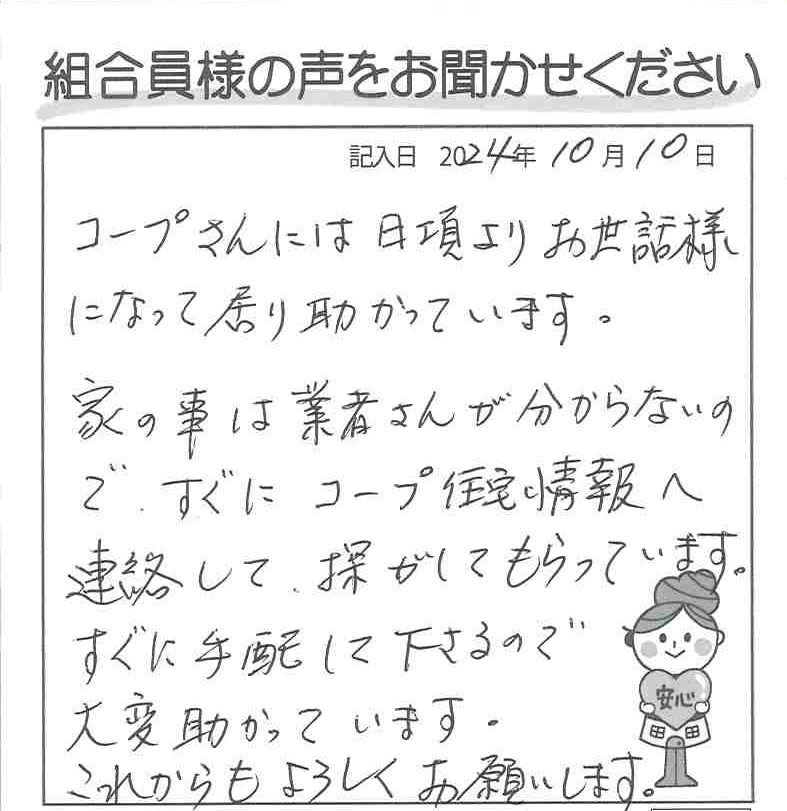 組合員様の声をお聞かせください
記入日 2024年 10月10日
コープさんには日頃よりお世話様
になって居り助かっています。
家の事は業者さんが分からないの
で、すぐに コープ住宅情報へ
連絡して、探がしてもらっています。
すぐに手配して下さるので
大変助かっています。
これからもよろしくお願いします。
安心